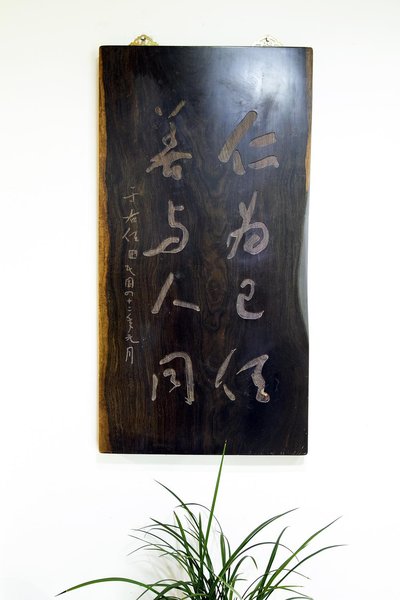 仁為己任
善与人同
于右任 民国四十二年元月